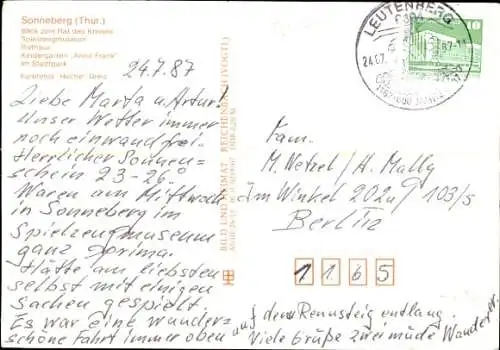 Sonneberg (Thür.)
Blick zum Rat des Kreises
Spielzeugmuseum
Rathaus
Kindergarten „Anne Frank“
im Stadtpark
24.7.87
Liebe Marta u. Artur!
Unser Wetter immer
noch einwandfrei.
Herrlicher Sonnen=
schein 23-26°
Waren am Mittwoch
in Sonneberg im
Spielzeugmuseum
ganz prima.
Hätte am liebsten
selbst mit einigen
Sachen gespielt.
Es war eine wunder=
schöne Fahrt immer oben
auf dem Rennsteig entlang.
Viele Grüße zwei müde Wanderer
BILD UND HEIMAT REICHENBACH (VOGTL)
LEUTENBERG
24.07.
10
Fam.
M. Netzel / H. Mally
Im Winkel 202a 103/5
Berlin
1 1 6 5